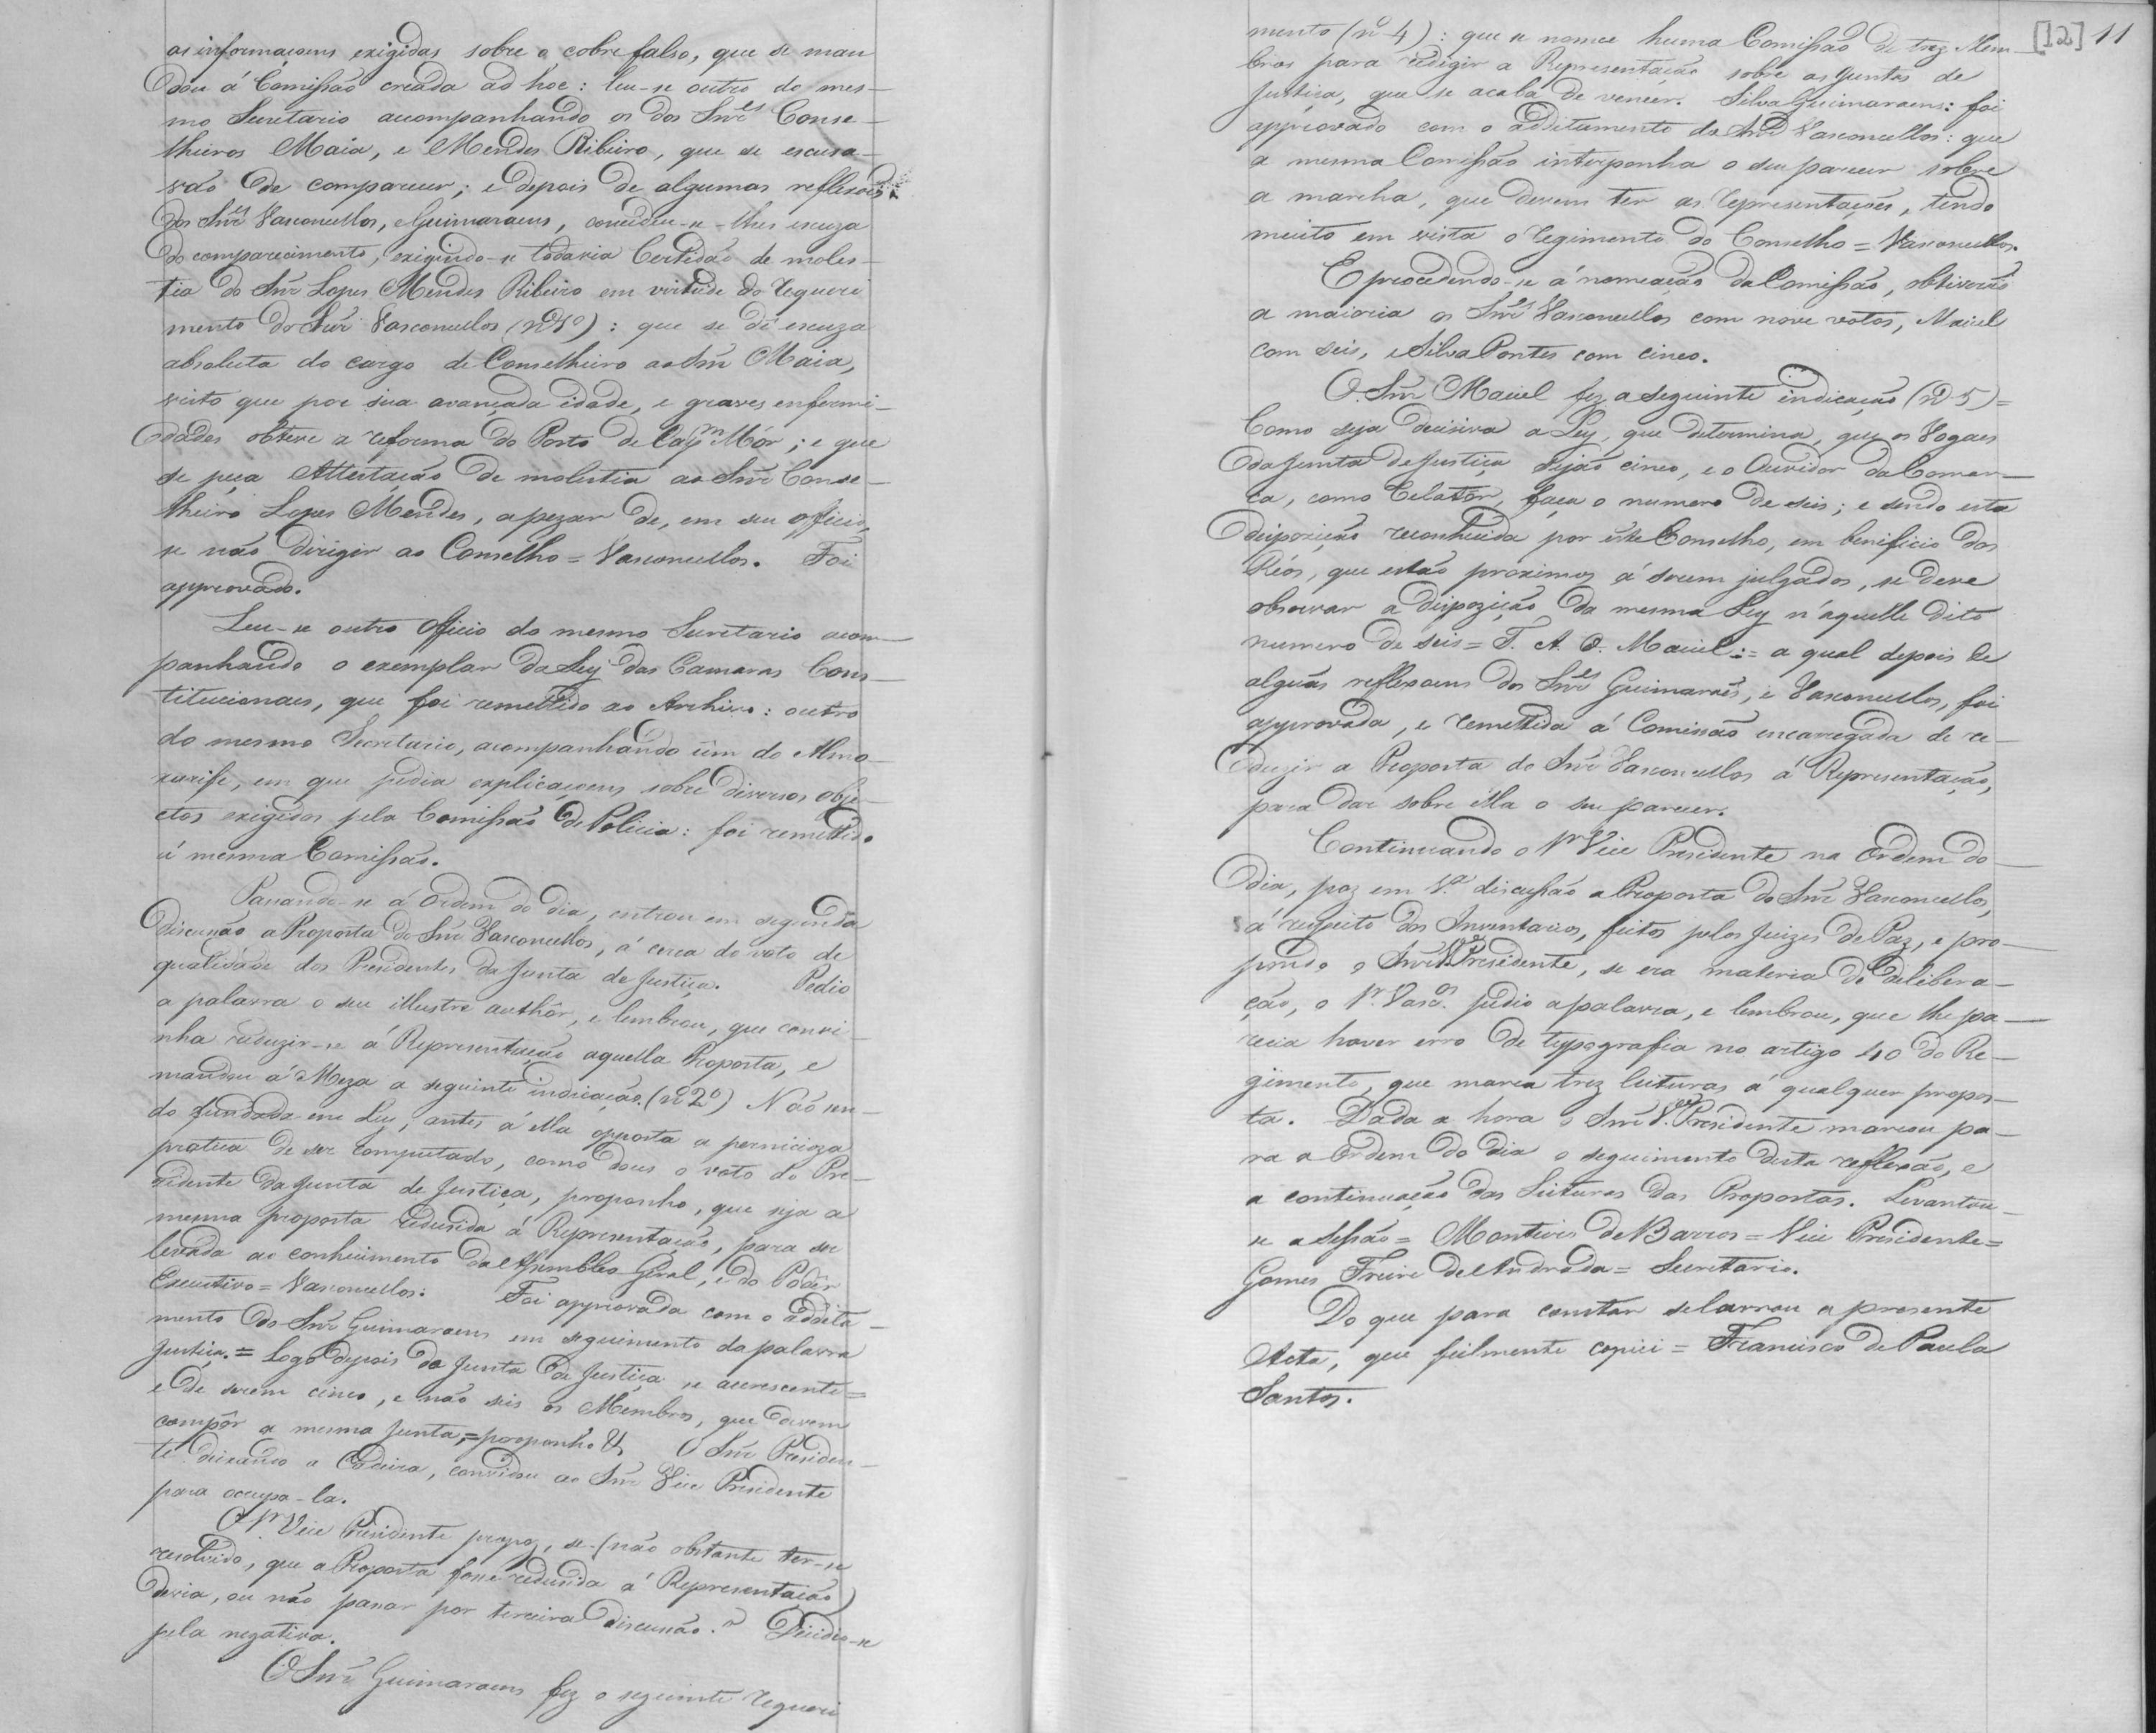 as informaçoens exigidas sobre o cobre falso, que se man
dou á Comissão creada ad hoc: leu-se outro do mes-
mo Secretario acompanhando os dos Snr.es Conse-
lheiros Maia, e Mendes Ribeiro, que se escusa-
vão de comparecer; e depois de algumas reflexões
dos Snr.es Vasconcellos, e Guimaraens, concedeu-se-lhes escuza
do comparecimento, exigindo-se todavia Certidão de moles-
tia do Snr. Lopes Mendes Ribeiro em virtude do requeri
mento do Snr. Vasconcellos (nº 1º): que se dê escuza
absoluta do cargo de Conselheiro ao Snr. Maia,
visto que por sua avançada idade, e graves enfermi-
dades obteve a reforma do Posto de Capm Mór; e que
se peça Attestação de molestia ao Snr. Conse-
lheiro Lopes Mendes, apezar de, em seu officio,
se não dirigir ao Conselho = Vasconcellos. Foi
approvado.
Leu-se outro Officio do mesmo Secretario acom-
panhando o exemplar da Ley das Camaras Cons-
titucionaes, que foi remettido ao Archivo: outro
do mesmo Secretario, acompanhando um do Almo-
xarife, em que pedia explicaçoens sobre diversos obje-
ctos exigidos pela Comissão de Policia: foi remettido
á mesma Comissão.
Passando-se á Ordem do dia, entrou em segunda
discussão a Proposta do Snr. Vasconcellos, á cerca do voto de
qualidade dos Presidentes da Junta de Justiça. Pedio
a palavra o seu illustre authôr, e lembrou, que convi-
nha reduzir-se á Representação aquella Proposta, e
mandou á Meza a seguinte indicação. (nº 2º) Não sen-
do fundada em Ley, antes á ella opposta a perniciosa
pratica de ser computado, como dous o voto do Pre-
sidente da Junta de Justiça, proponho, que seja a
mesma proposta redusida á Representação, para ser
levada ao conhecimento da Assemblea Geral, e do Podêr
Executivo = Vasconcellos: Foi approvada com o addita-
mento do Snr. Guimaraens em seguimento da palavra
Justiça. = Logo depois da Junta de Justiça se accrescente =
e de serem cinco, e não seis os Membros, que devem
compôr a mesma Junta, = proponho &. O Snr. Presiden-
te deixando a Cadeira, convidou ao Snr. Vice Presidente
para occupa-la.
O Sr. Vice Presidente propoz, se (não obstante ter-se
resolvido, que a Proposta fosse redusida á Representação)
devia, ou não passar por terceira discussão.? Decidio-se
pela negativa.
O Snr. Guimaraens fez o seguinte requeri
[12] 11
mento (nº 4): que se nomee huma Comissão de trez Mem-
bros para redigir a Representação sobre as Juntas de
Justiça, que se acaba de vencer. Silva Guimaraens: foi
approvado com o additamento do Snr. Vasconcellos: que
a mesma Comissão interponha o seu parecer sobre
a marcha, que devem ter as representações, tendo
muito em vista o regimento do Conselho = Vasconcellos.
E procedendo-se á nomeação da Comissão, obtiverão
a maioria os Snr.es Vasconcellos com nove votos, Maciel
com seis, e Silva Pontes com cinco.
O Snr. Maciel fez a seguinte indicação (nº 5) =
Como seja decisiva a Ley, que determina, que os Vogaes
da Junta de Justiça sejão cinco, e o Ouvidor da Comar-
ca, como Relatôr, faça o numero de seis; e sendo esta
disposição reconhecida por este Conselho, em beneficio dos
Réos, que estão proximos á serem julgados, se deve
observar a disposição da mesma Ley n'aquelle dito
numero de seis = T. A. O. Maciel: = a qual depois de
alguãs reflexoens dos Snr.es Guimaraẽs, e Vasconcellos, foi
approvada, e remettida á Comissão encarregada de re-
dusir a Proposta do Snr. Vasconcellos á Representação,
para dar sobre ella o seu parecer.
Continuando o Sr. Vice Presidente na Ordem do
dia, poz em 1.ª discussão a Proposta do Snr. Vasconcellos,
á respeito dos Inventarios, feitos pelos Juizes de Paz, e pro-
pondo o Snr. V.e Presidente, se era materia de delibera-
ção, o Sr. Vasc.os pedio a palavra, e lembrou, que lhe pa-
recia haver erro de typografia no artigo 40 do Re-
gimento, que marca trez leituras á qualquer propos-
ta. Dada a hora o Snr. V.ce Presidente marcou pa-
ra a Ordem do dia o seguimento desta reflexão, e
a continuação das Leituras das Propostas. Levantou-
se a Sessão = Monteiro de Barros = Vice Presidente =
Gomes Freire de Andrada = Secretario.
Do que para constar se lavrou a presente
Acta, que fielmente copiei = Francisco de Paula
Santos.